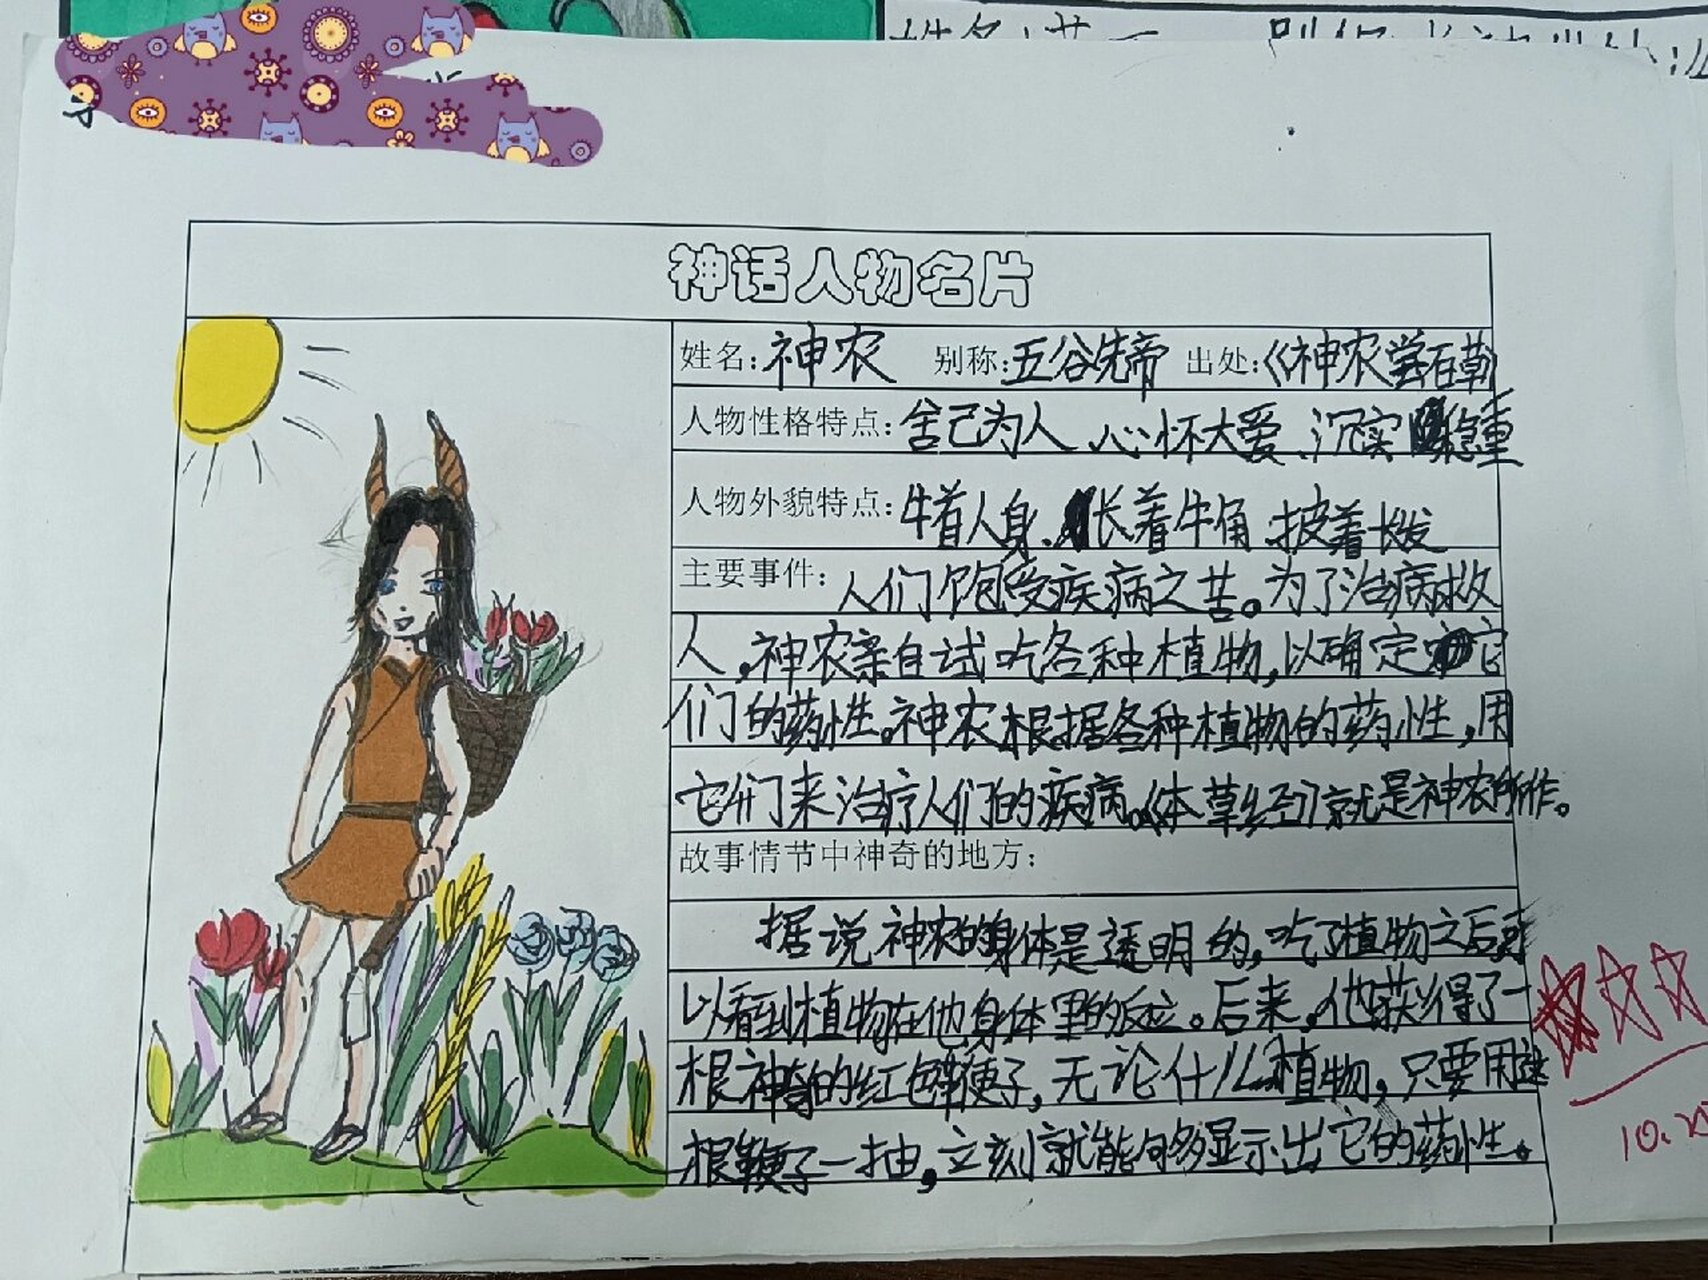 神话人物名片
姓名:神农 别称:五谷先帝 出处:《神农尝百草》
人物性格特点:舍己为人、心怀大爱、沉实稳重
人物外貌特点:牛首人身、长着牛角、披着长发
主要事件:人们饱受疾病之苦。为了治病救
人,神农亲自试吃各种植物,以确定它
们的药性。神农根据各种植物的药性,用
它们来治疗人们的疾病。《本草经》就是神农所作。
故事情节中神奇的地方:
据说神农的身体是透明的,吃了植物之后可
以看到植物在他身体里的反应。后来,他获得了一
根神奇的红色鞭子,无论什么植物,只要用这
根鞭子一抽,立刻就能够显示出它的药性。